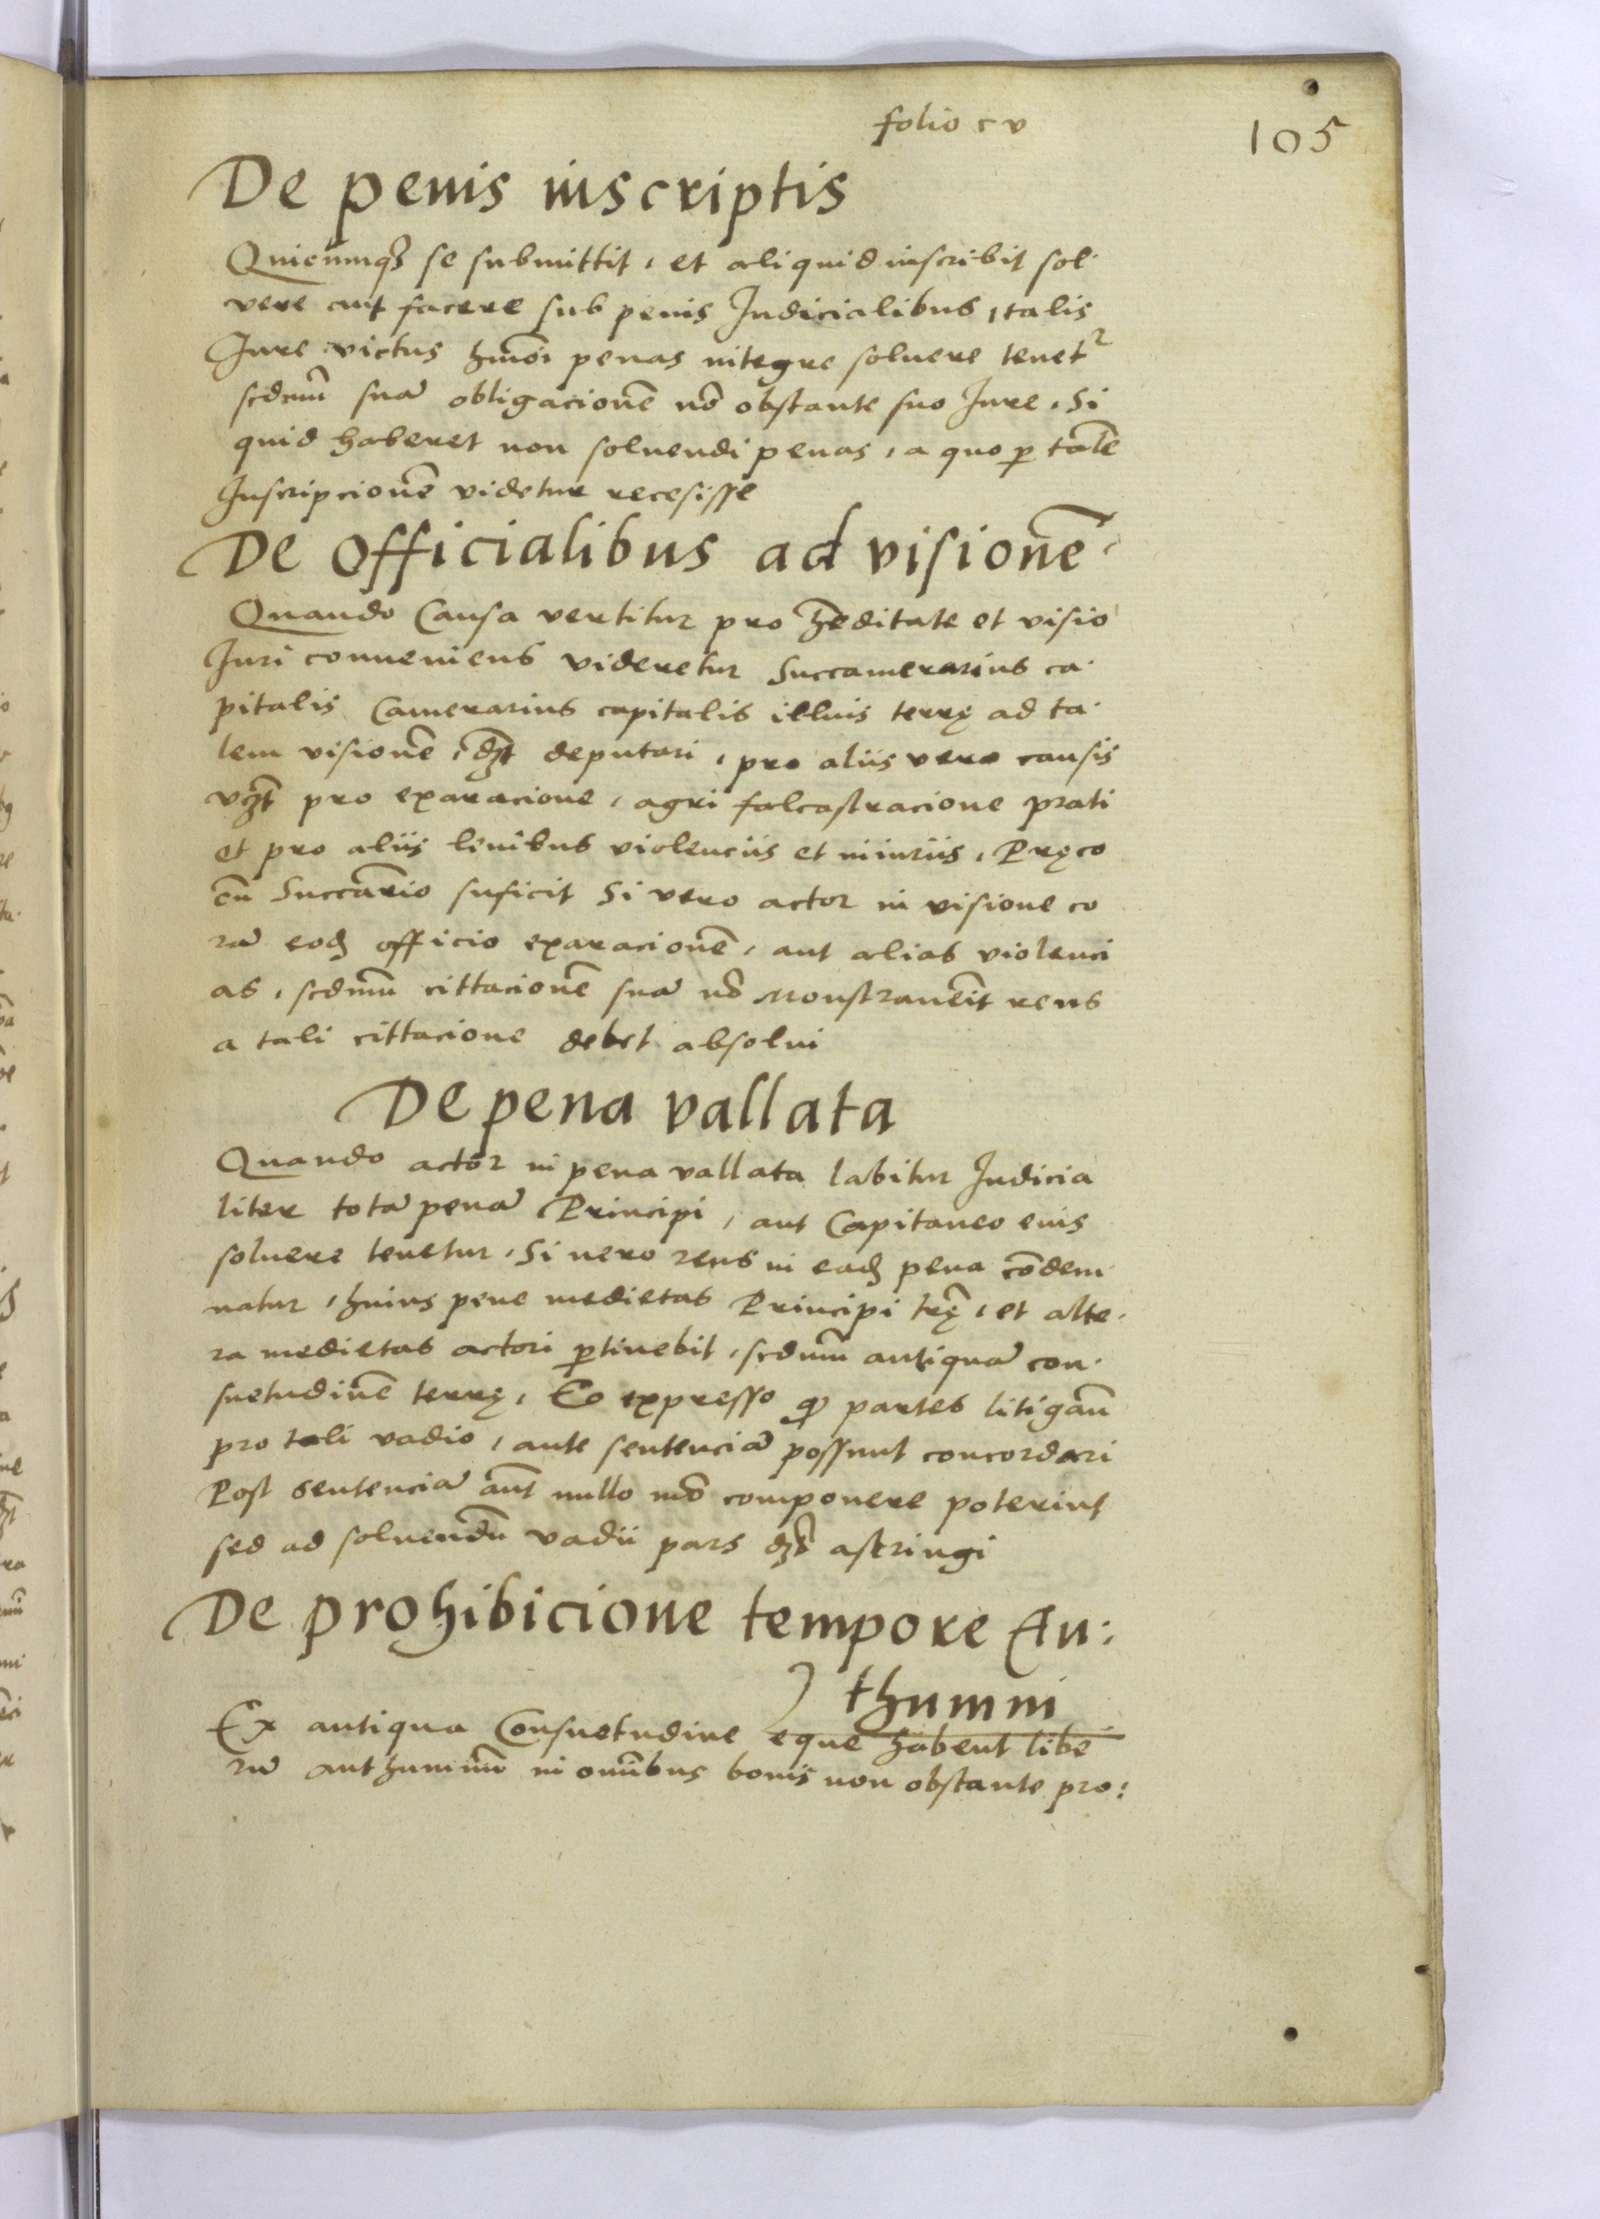 folio cv
105
De penis inscriptis
Quicumqꝫ se submittit, et aliquid inscribit sol.
vere aut facere sub penis Judicialibus, talis
Jure victus hmōi penas integre soluere tenetr
scdum suā obligacionē nō obstante suo Jure, Si
quid haberet non soluendi penas, a quo ꝑ talē
Inscripcionē videtur recesisse
De Officialibus ad visionē
Quando Causa vertitur pro hēditate et visio
Juri conueniens videretur Succamerarius ca.
pitalis Camerarius capitalis illius terrę ad ta.
lem visionē, dꝫt deputari, pro aliis vero causis
vꝫt pro exaracione, agri falcastracione prati
et pro aliis leuibus violenciis et iniuriis, Pręco
cū Succārio suficit Si vero actor in visione co
rā eodꝫ officio exaracionē, aut alias violenci
as, scdmū cittacionē suā nō Monstrauēit reus
a tali cittacione debet absolui
De pena vallata
Quando actor in pena vallata labitur Judicia
liter totā penā Principi, aut Capitaneo eius
soluere tenetur, Si uero reus in eadꝫ pena cōdem
natur, huius pene medietas Principi trę̄, et alte.
ra medietas actori ꝑtinebit, scdum̄ antiquā con.
suetudinē terrę, Eo expresso ꝙ partes litigan̄
pro tali vadio, ante sentenciā possunt concordari
Post sentenciā aūt nullo mō componere poterint
sed ad soluendū vadii pars dꝫt astringi
De prohibicione tempore Au:
thumni
Ex antiqua Consuetudine eque habent libe
rū authumnū in omībus bonis non obstante pro: